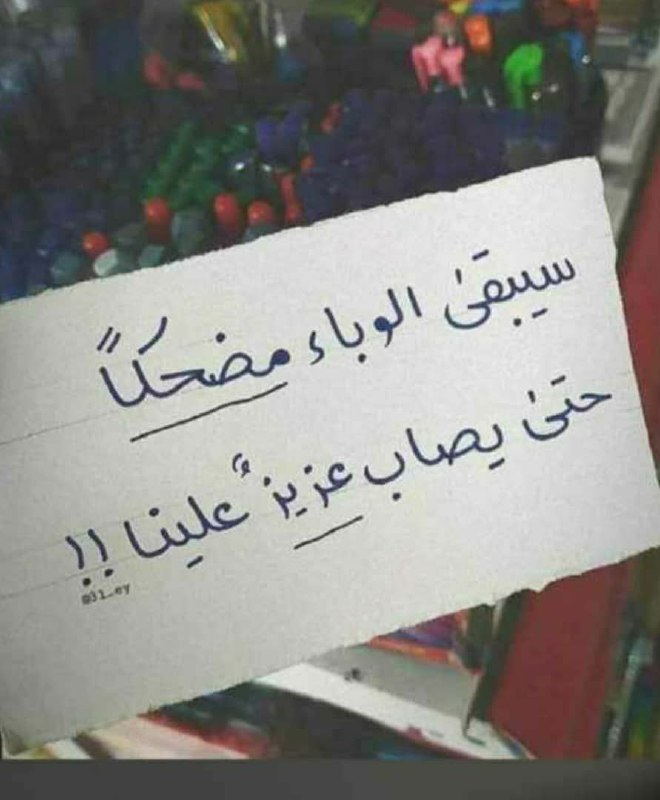 سيبقىٰ الوباء مضحكاً
حتىٰ يصاب عزيزٌ علينا !!
@31_ey